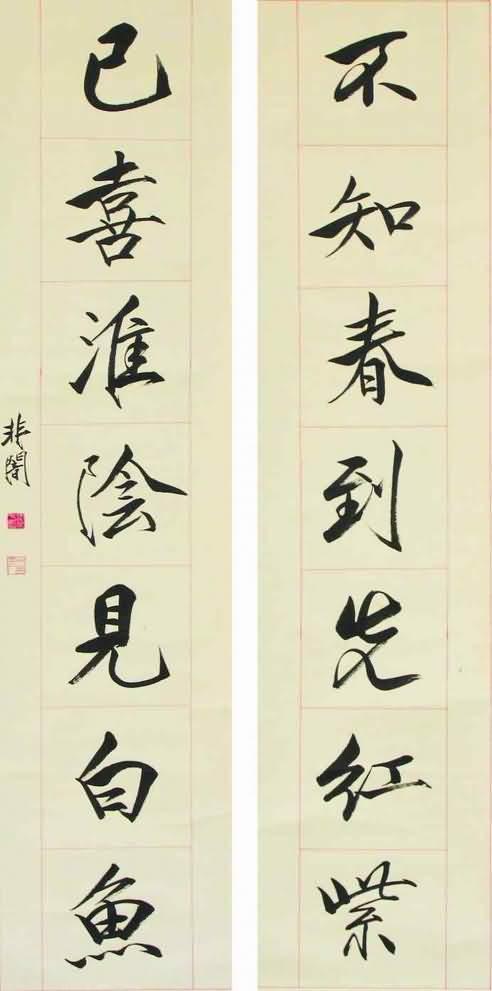 不知春到先红紫
已喜淮陰見白魚
非闇